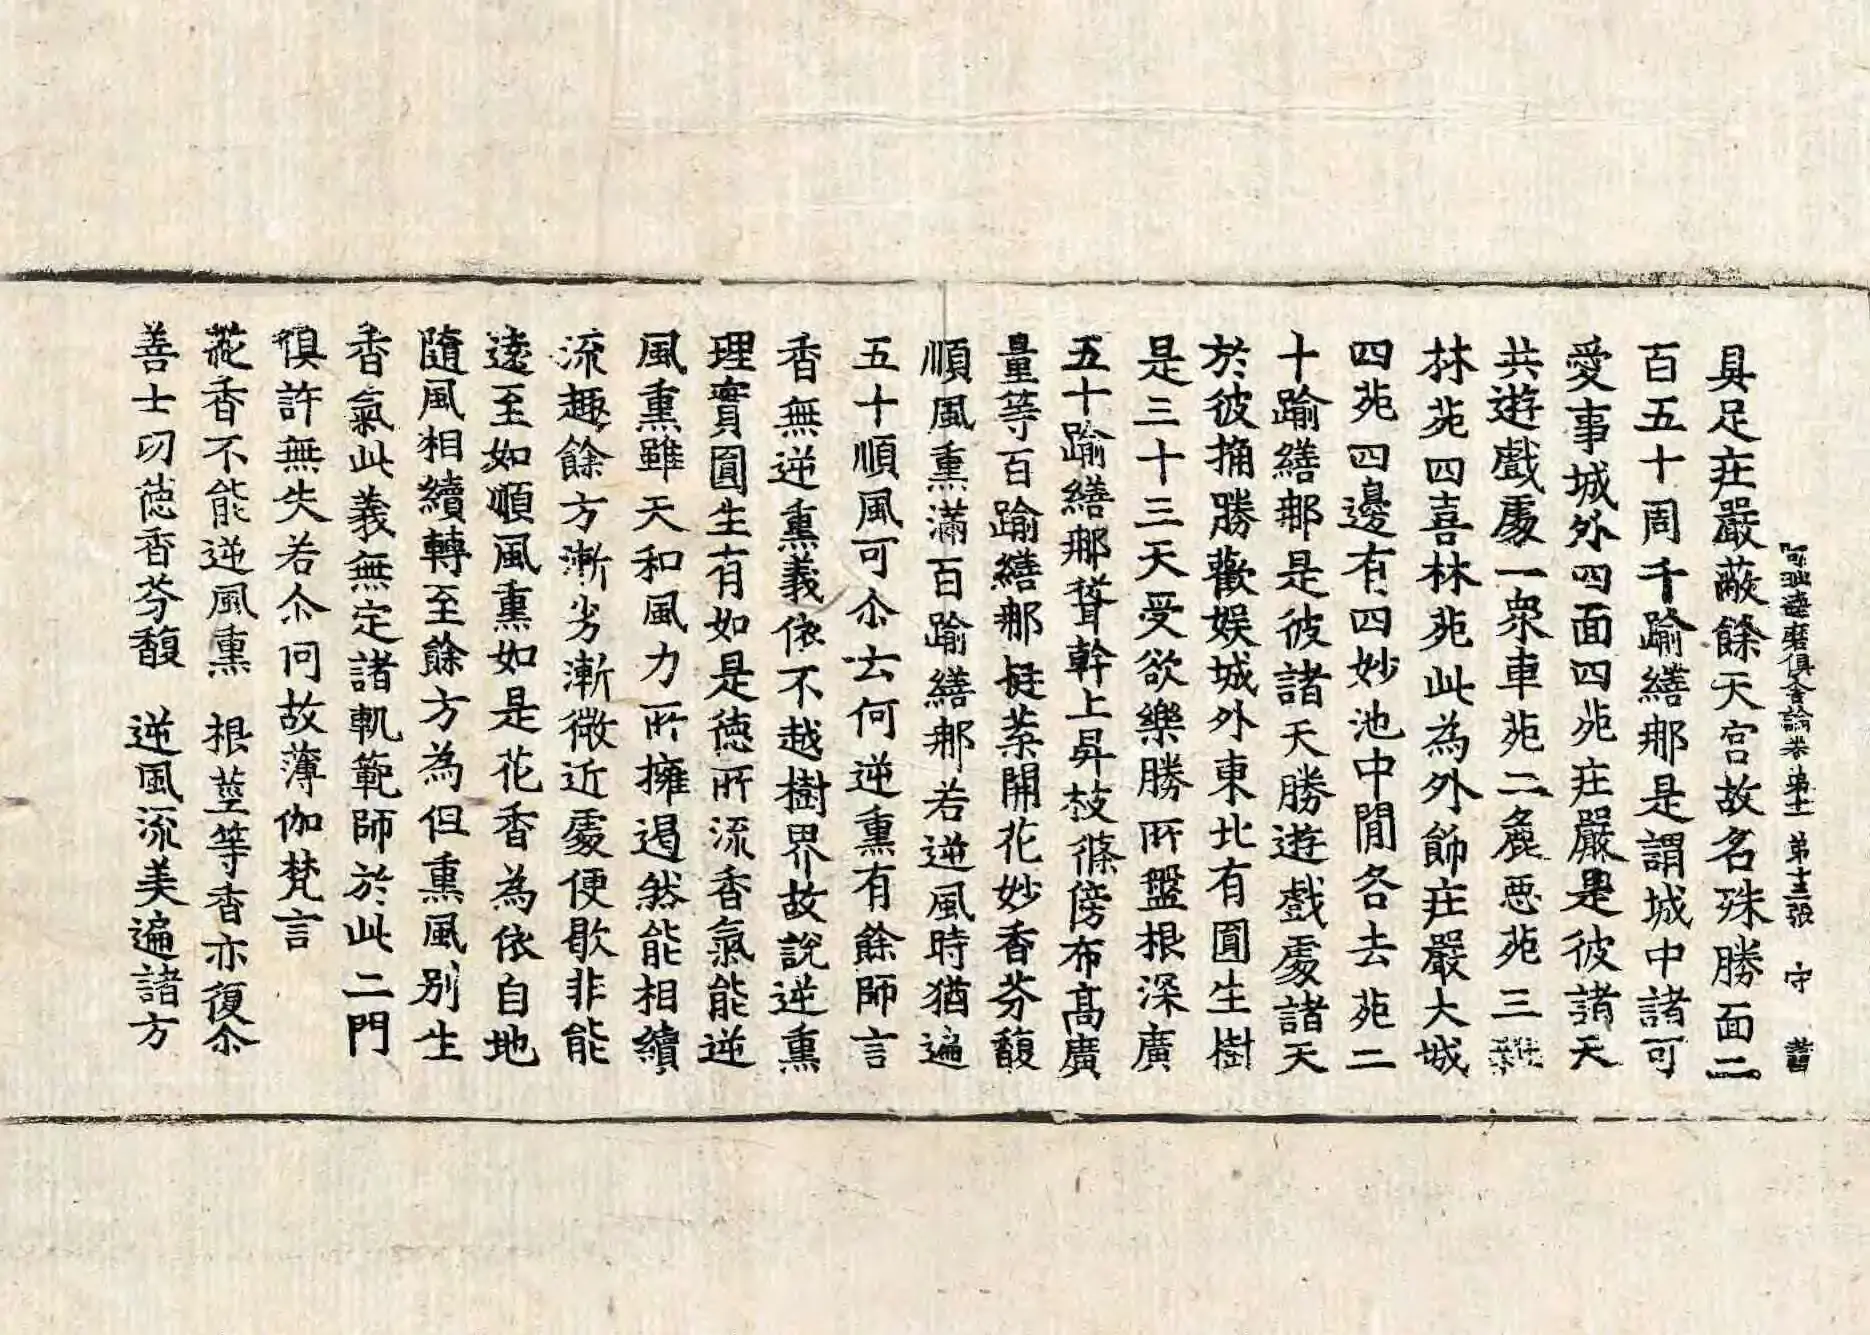 阿毗達磨俱舍論卷第十一 第十三張 守 昔
具足庄嚴蔽餘天宮故名殊勝面二
百五十周千踰繕那是謂城中諸可
愛事城外四面四苑庄嚴是彼諸天
共遊戲處一衆車苑二麁惡苑三雜
林苑四喜林苑此為外飾庄嚴大城
四苑四邊有四妙池中間各去苑二
十踰繕那是彼諸天勝遊戲處諸天
於彼捔勝歡娛城外東北有圓生樹
是三十三天受欲樂勝所盤根深廣
五十踰繕那聳幹上昇枝條傍布高廣
量等百踰繕那挺葉開花妙香芬馥
順風熏滿百踰繕那若逆風時猶遍
五十順風可尒云何逆熏有餘師言
香無逆熏義依不越樹界故說逆熏
理實圓生有如是徳所流香氣能逆
風熏雖天和風力所擁遏然能相續
流趣餘方漸劣漸微近處便歇非能
遠至如順風熏如是花香為依自地
隨風相續轉至餘方為但熏風別生
香氣此義無定諸軌範師於此二門
俱許無失若尒何故薄伽梵言
花香不能逆風熏 根莖等香亦復尒
善士功徳香芬馥 逆風流美遍諸方